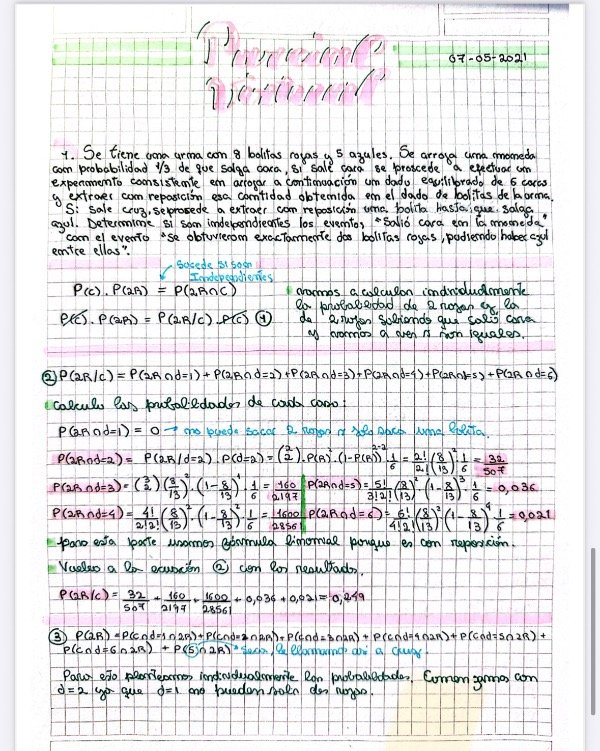 Parcial
Virtual
07-05-2021
1. Se tiene una urna con 8 bolitas rojas y 5 azules. Se arroja una moneda
con probabilidad 1/3 de que salga cara, si sale cara se proscede a efectuar un
experimento consistente en arrojar a continuación un dado equilibrado de 6 caras
y extraer con reposición esa cantidad obtenida en el dado de bolitas de la urna.
Si sale cruz, se prosede a extraer con reposición una bolita hasta que salga
azul. Determine si son independientes los eventos "Salió cara en la moneda"
con el evento "se obtuvieron exactamente dos bolitas rojas, pudiendo haber azul
entre ellas".
Sucede si son
Independientes
P(C) . P(2R) = P(2R∩C)
P(C) . P(2R) = P(2R/C) . P(C) 1
vamos a calcular individualmente
la probabilidad de 2 rojas y la
de 2 rojas sabiendo que salió cara
y vamos a ver si son iguales.
2 P(2R/C) = P(2R∩d=1) + P(2R∩d=2) + P(2R∩d=3) + P(2R∩d=4) + P(2R∩d=5) + P(2R∩d=6)
calculo las probabilidades de cada caso:
P(2R∩d=1) = 0 → no puede sacar 2 rojas si solo saca una bolita.
P(2R∩d=2) = P(2R/d=2) . P(d=2) = (2 2) . P(R)² . (1-P(R))²⁻² 1/6 = 2!/2! (8/13)² 1/6 = 32/507
P(2R∩d=3) = (3 2) (8/13)² . (1-8/13)¹ . 1/6 = 160/2197
P(2R∩d=5) = 5!/3!2! (8/13)² (1-8/13)³ 1/6 = 0,036
P(2R∩d=4) = 4!/2!2! (8/13)² . (1-8/13)² . 1/6 = 1600/28561
P(2R∩d=6) = 6!/4!2! (8/13)² (1-8/13)⁴ 1/6 = 0,021
para esta parte usamos fórmula binomial porque es con reposición.
Vuelvo a la ecuación 2 con los resultados.
P(2R/C) = 32/507 + 160/2197 + 1600/28561 + 0,036 + 0,021 = 0,249
3 P(2R) = P(C∩d=1∩2R) + P(C∩d=2∩2R) + P(C∩d=3∩2R) + P(C∩d=4∩2R) + P(C∩d=5∩2R) +
P(C∩d=6∩2R) + P(S∩2R) Seca, le llamamos asi a cruz.
Para eso planteamos individualmente las probabilidades. Comenzamos con
d=2 ya que d=1 no pueden salir dos rojas.